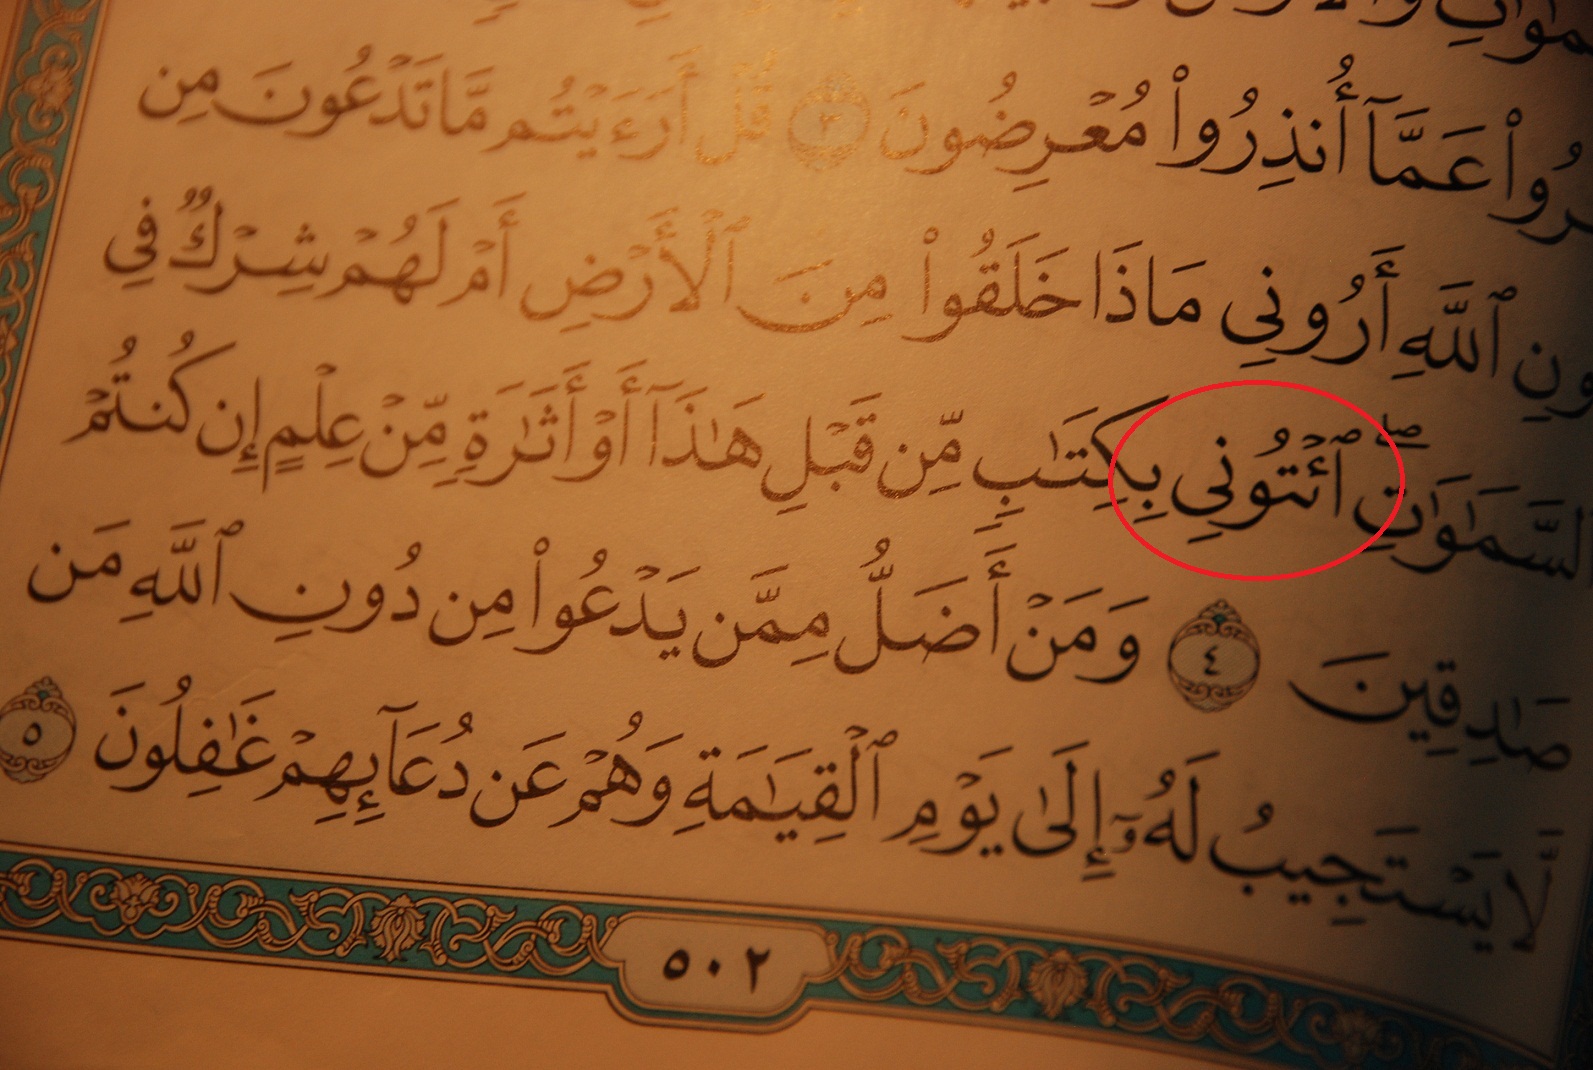 رُوا۟ عَمَّآ أُنذِرُوا۟ مُعْرِضُونَ ٣ قُلْ أَرَءَيْتُم مَّا تَدْعُونَ مِن
ونِ ٱللَّهِ أَرُونِى مَاذَا خَلَقُوا۟ مِنَ ٱلْأَرْضِ أَمْ لَهُمْ شِرْكٌ فِى
ٱلسَّمَـٰوَٰتِ ۖ ٱئْتُونِى بِكِتَـٰبٍ مِّن قَبْلِ هَـٰذَآ أَوْ أَثَـٰرَةٍ مِّنْ عِلْمٍ إِن كُنتُمْ
صَـٰدِقِينَ ٤ وَمَنْ أَضَلُّ مِمَّن يَدْعُوا۟ مِن دُونِ ٱللَّهِ مَن
لَّا يَسْتَجِيبُ لَهُۥٓ إِلَىٰ يَوْمِ ٱلْقِيَـٰمَةِ وَهُمْ عَن دُعَآئِهِمْ غَـٰفِلُونَ ٥
٥٠٢